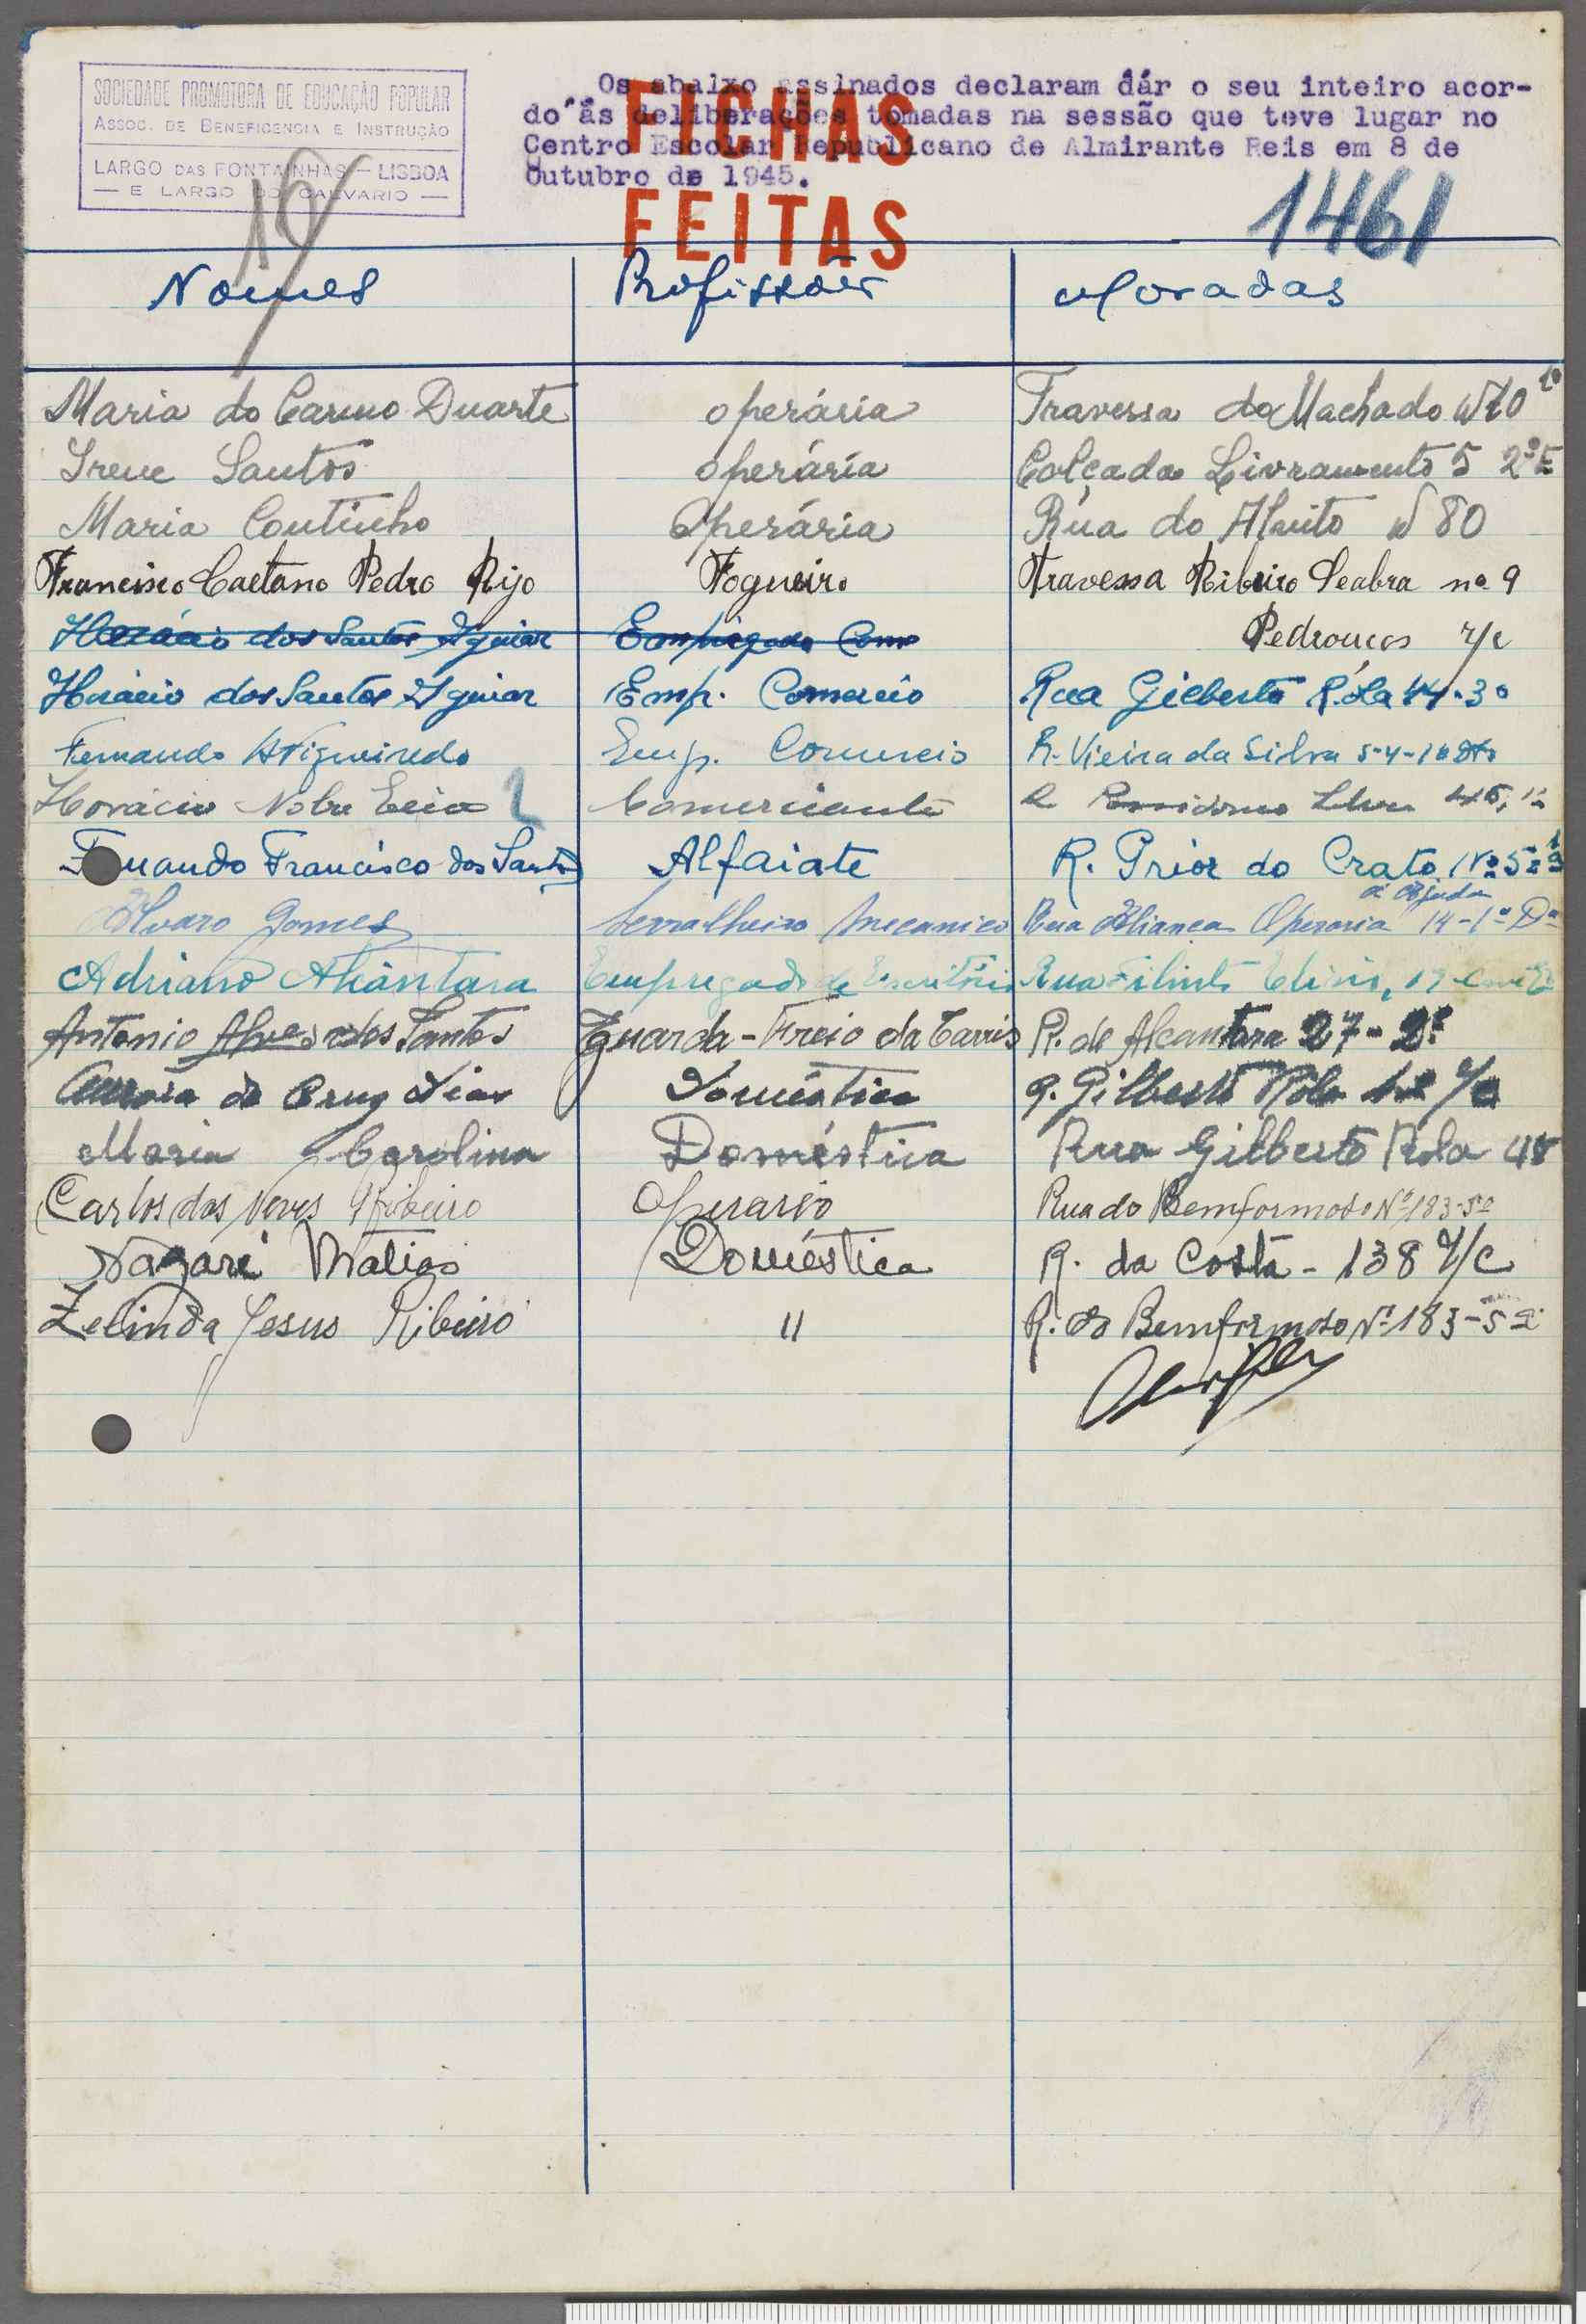 SOCIEDADE PROMOTORA DE EDUCAÇÃO POPULAR
ASSOC. DE BENEFICENCIA E INSTRUÇÃO
LARGO DAS FONTAINHAS — LISBOA
— E LARGO DO CALVARIO —
Os abaixo assinados declaram dár o seu inteiro acor-
do ás deliberações tomadas na sessão que teve lugar no
Centro Escolar Republicano de Almirante Reis em 8 de
Outubro de 1945.
FICHAS
FEITAS
1461
Nomes Profissões Moradas
Maria do Carmo Duarte operária Travessa do Machado Nº 10 1º
Irene Santos operária Calçada Livramento 5 2º E
Maria Coutinho Operária Rua do Alvito Nº 80
Francisco Caetano Pedro Rijo Fogueiro Travessa Ribeiro Seabra nº 9
Horácio dos Santos Aguiar Empregado Com Pedrouços r/c
Horácio dos Santos Aguiar Emp. Comercio Rua Gilberto Rola 44-3º
Fernando Figueiredo Emp. Comercio R. Vieira da Silva 5-4-1º Dto
Horácio Nobre Comerciante 45, 1º
Fernando Francisco dos Santos Alfaiate R. Prior do Crato Nº 5
á Ajuda
Alvaro Gomes Serralheiro Mecanico Rua Aliança Operaria 14-1º Dº
Adriano Alcântara Empregado de Escritório Rua Filinto Elisio, 19
Antonio Alves dos Santos Guarda-Freio da Carris R. de Alcantara 27-2º
Aurora da Cruz Dias Doméstica R. Gilberto Rola r/c
Maria Carolina Doméstica Rua Gilberto Rola 48
Carlos das Neves Ribeiro Operario Rua do Bemformoso Nº 183-5º
Nazaré Matias Doméstica R. da Costa - 138 r/c
Zelinda Jesus Ribeiro " R. do Bemformoso Nº 183-5º